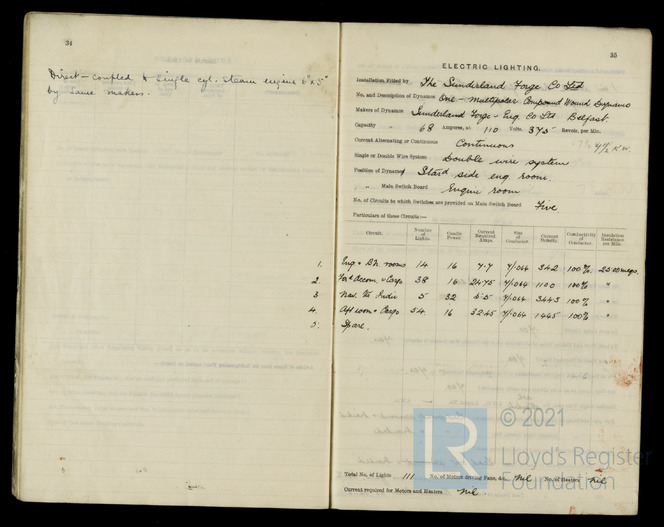 34
Direct-coupled to single cyl. steam engine 6" x 5"
by same makers.
35
ELECTRIC LIGHTING.
Installation Fitted by The Sunderland Forge Co Ltd
No. and Description of Dynamos One - Multipolar Compound Wound Dynamo
Makers of Dynamos Sunderland Forge & Eng. Co Ltd Belfast
Capacity " 68 Amperes, at 110 Volts, 375 Revols. per Min.
Current Alternating or Continuous Continuous 7½ K.W.
Single or Double Wire System Double wire system
Position of Dynamos Starbd side eng. room.
" Main Switch Board Engine room
No. of Circuits to which Switches are provided on Main Switch Board Five
Particulars of these Circuits:—
Circuit. Number of Lights. Candle Power. Current Required. Amps. Size of Conductor. Current Density. Conductivity of Conductor. Insulation Resistance per Mile.
1. Eng & Blr. rooms 14 16 7.7 7/.064 342 100%
2. Ford Accom. & Cargo 38 16 24.75 7/.064 1100 100% "
3. 5 32 5.5 100% "
4. Aft room & Cargo 54 16 32.45 7/.064 1445 100% "
5. Spare.
Total No. of Lights 111 No. of Motors driving Fans, &c. nil No. of Heaters nil
Current required for Motors and Heaters nil
LR © 2021
Lloyd's Register
Foundation